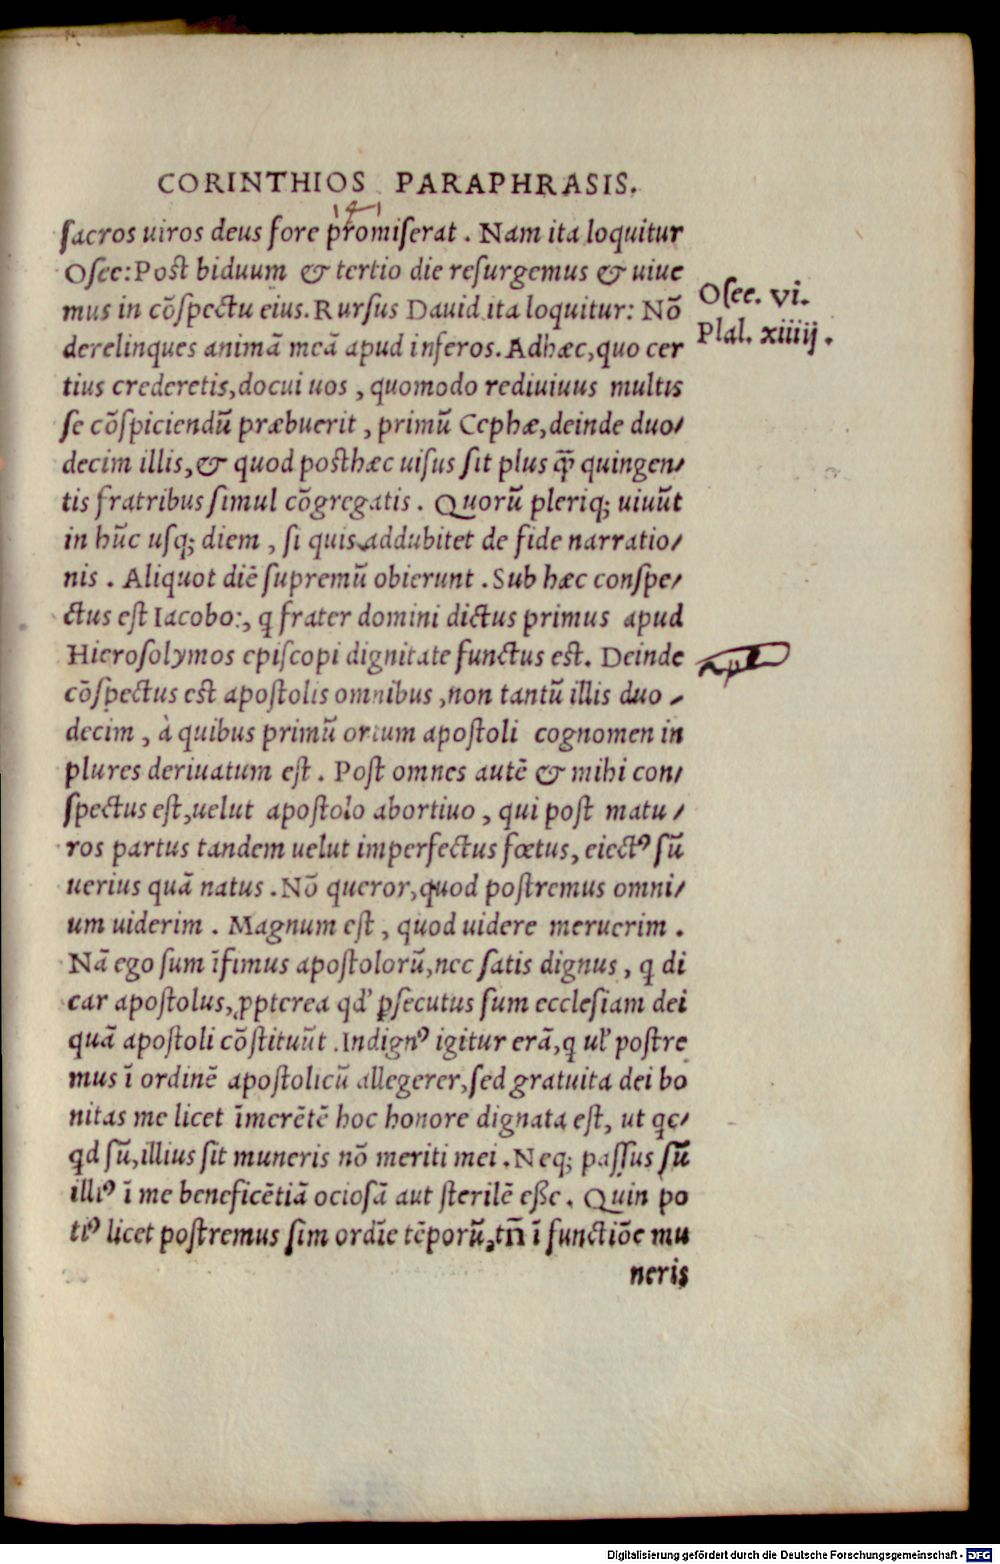 CORINTHIOS PARAPHRASIS.
sacros uiros deus fore promiserat. Nam ita loquitur
Osee: Post biduum & tertio die resurgemus & uiue
mus in cōspectu eius. Rursus Dauid ita loquitur: Nō
derelinques animā meā apud inferos. Adhæc, quo cer
tius crederetis, docui uos, quomodo rediuiuus multis
se cōspiciendū præbuerit, primū Cephæ, deinde duo/
decim illis, & quod posthæc uisus sit plus q̄ꝫ quingen/
tis fratribus simul cōgregatis. Quorū pleriqꝫ uiuūt
in hūc usqꝫ diem, si quis addubitet de fide narratio/
nis. Aliquot diē supremū obierunt. Sub hæc conspe/
ctus est Iacobo:, q frater domini dictus primus apud
Hierosolymos episcopi dignitate functus est. Deinde
cōspectus est apostolis omnibus, non tantū illis duo/
decim, à quibus primū ortum apostoli cognomen in
plures deriuatum est. Post omnes autē & mihi con/
spectus est, uelut apostolo abortiuo, qui post matu/
ros partus tandem uelut imperfectus fœtus, eiectꝰ sū
uerius quā natus. Nō queror, quod postremus omni/
um uiderim. Magnum est, quod uidere meruerim.
Nā ego sum īfimus apostolorū, nec satis dignus, q di
car apostolus, ꝓpterea qd' ꝑsecutus sum ecclesiam dei
quā apostoli cōstituūt. Indignꝰ igitur erā, q ul' postre
mus ī ordinē apostolicū allegerer, sed gratuita dei bo
nitas me licet īmerētē hoc honore dignata est, ut qc/
qd sū, illius sit muneris nō meriti mei. Neqꝫ passus sū
illiꝰ ī me beneficētiā ociosā aut sterilē eße. Quin po
tiꝰ licet postremus sim ordīe tēporū, tn̄ ī functiōe mu
neris
Osee. vi.
Psal. xiiiij.
Digitalisierung gefördert durch die Deutsche Forschungsgemeinschaft - DFG